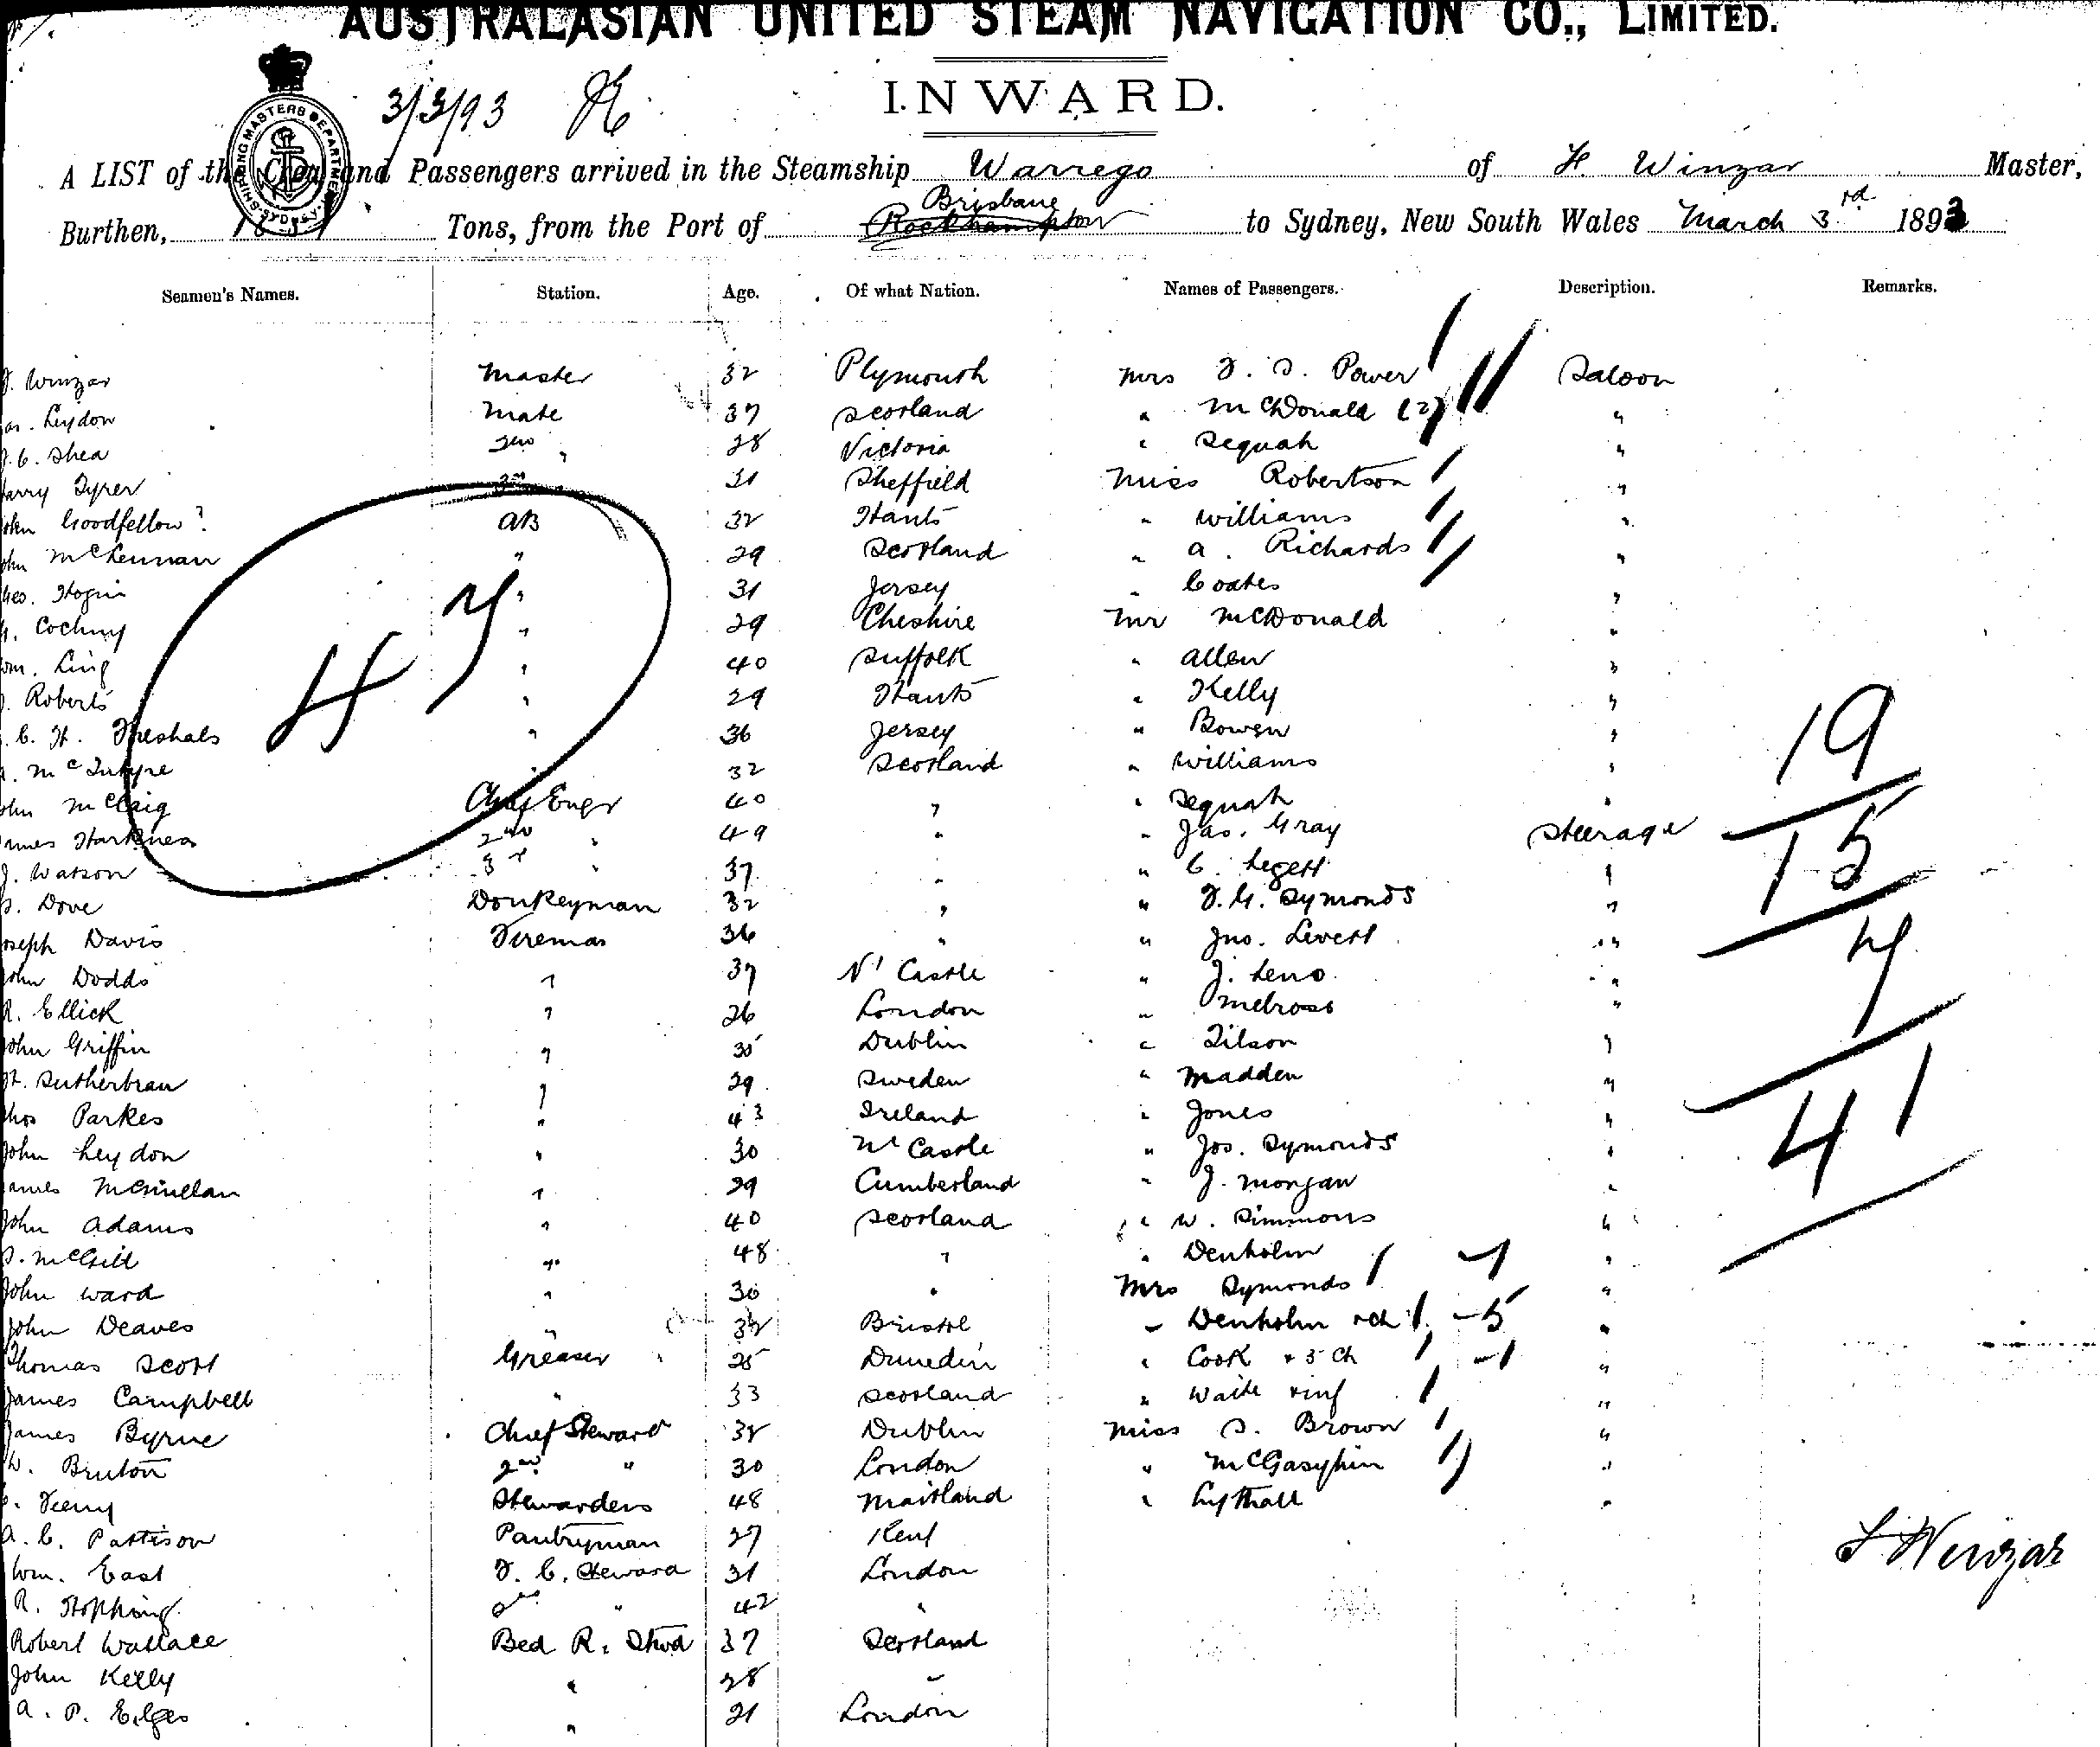 AUSTRALASIAN UNITED STEAM NAVIGATION CO., LIMITED.
3/3/93
INWARD.
SHIPPING MASTERS DEPARTMENT SYDNEY
A LIST of the Crew and Passengers arrived in the Steamship Warrego of F. Winzar Master,
Brisbane
Burthen, Tons, from the Port of Rockhampton to Sydney, New South Wales March 3rd 1893
Seamen's Names. Station. Age. Of what Nation. Names of Passengers. Description. Remarks.
F. Winzar Master 32 Plymouth Mrs F. S. Power Saloon
Leydon Mate 37 Scotland " McDonald (2) "
Shea 2nd " 28 Victoria " Sequah "
Harry Tyrer 3rd 31 Sheffield Miss Robertson "
John Goodfellow? AB 32 Hants " Williams "
John McLennan " 29 Scotland " A. Richards "
Geo. Hogin " 31 Jersey " Coates "
" 29 Cheshire Mr McDonald "
Wm. Ling " 40 Suffolk " Allen "
Roberts " 29 Hants " Kelly "
C. H. " 36 Jersey " Bowen "
McIntyre " 32 Scotland " Williams "
John McCraig Chief Engr 40 " " Sequah "
James Harkness 2nd " 49 " " Jas. Gray Steerage
J. Watson 3rd " 37 " " C. Legett "
Dove Donkeyman 32 " " F. G. Symonds "
Joseph Davis Fireman 36 " " Jno. Levett "
John Dodds " 37 N' Castle " J. Leno "
R. Ellick " 26 London " Melross "
John Griffin " 35 Dublin " Tilson "
" 29 Sweden " Madden "
Thos Parkes " 43 Ireland " Jones "
John Leydon " 30 N' Castle " Jos. Symonds "
James McMillan " 29 Cumberland " J. Morgan "
John Adams " 40 Scotland " W. Simmons "
McGill " 48 " " Denholm "
John Ward " 30 " Mrs Symonds "
John Deaves " 32 Bristol " Denholm "
Thomas Scott Greaser 25 Dunedin " Cook + 5 Ch "
James Campbell " 33 Scotland " Waite + inf "
James Byrne Chief Steward 38 Dublin Miss S. Brown "
W. Bruton 2nd " 30 London " "
Stewardess 48 Maitland " Lythall "
A. C. Pattison Pantryman 27 Kent
Wm. East F. C. Steward 31 London
R. Stopking 2nd " 42 "
Robert Wallace Bed R. Stwd 37 Scotland
John Kelly " 28 "
A. P. " 21 London
47
19
15
7
41
F Winzar